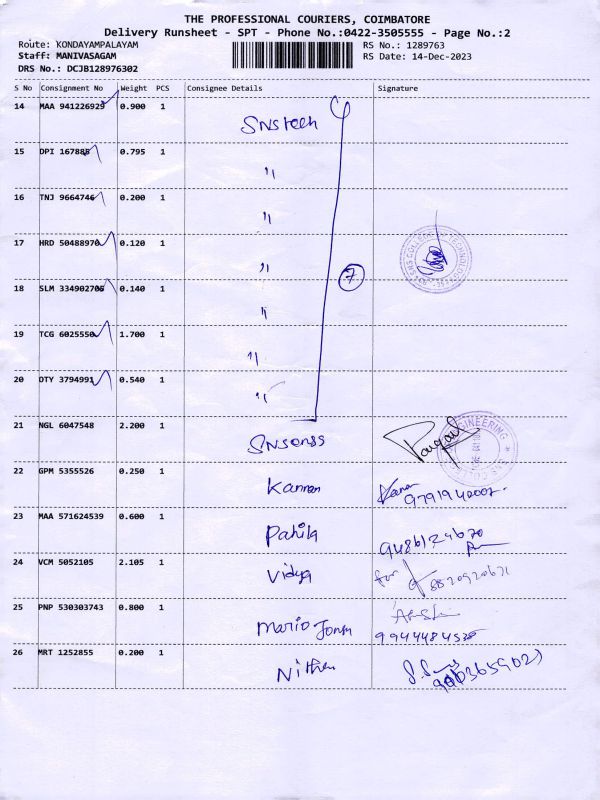 THE PROFESSIONAL COURIERS, COIMBATORE
Delivery Runsheet - SPT - Phone No.:0422-3505555 - Page No.:2
Route: KONDAYAMPALAYAM RS No.: 1289763
Staff: MANIVASAGAM RS Date: 14-Dec-2023
DRS No.: DCJB128976302
S No Consignment No Weight PCS Consignee Details Signature
14 MAA 941226929 0.900 1 SNS tech
15 DPI 167885 0.795 1 "
16 TNJ 9664746 0.200 1 "
17 HRD 50488970 0.120 1 "
7
18 SLM 334902705 0.140 1 "
19 TCG 6025550 1.700 1 "
20 OTY 3794991 0.540 1 "
21 NGL 6047548 2.200 1
22 GPM 5355526 0.250 1 Kannan
23 MAA 571624539 0.600 1 Pahila
24 VCM 5052105 2.105 1 Vidya for
25 PNP 530303743 0.800 1 Mario
26 MRT 1252855 0.200 1